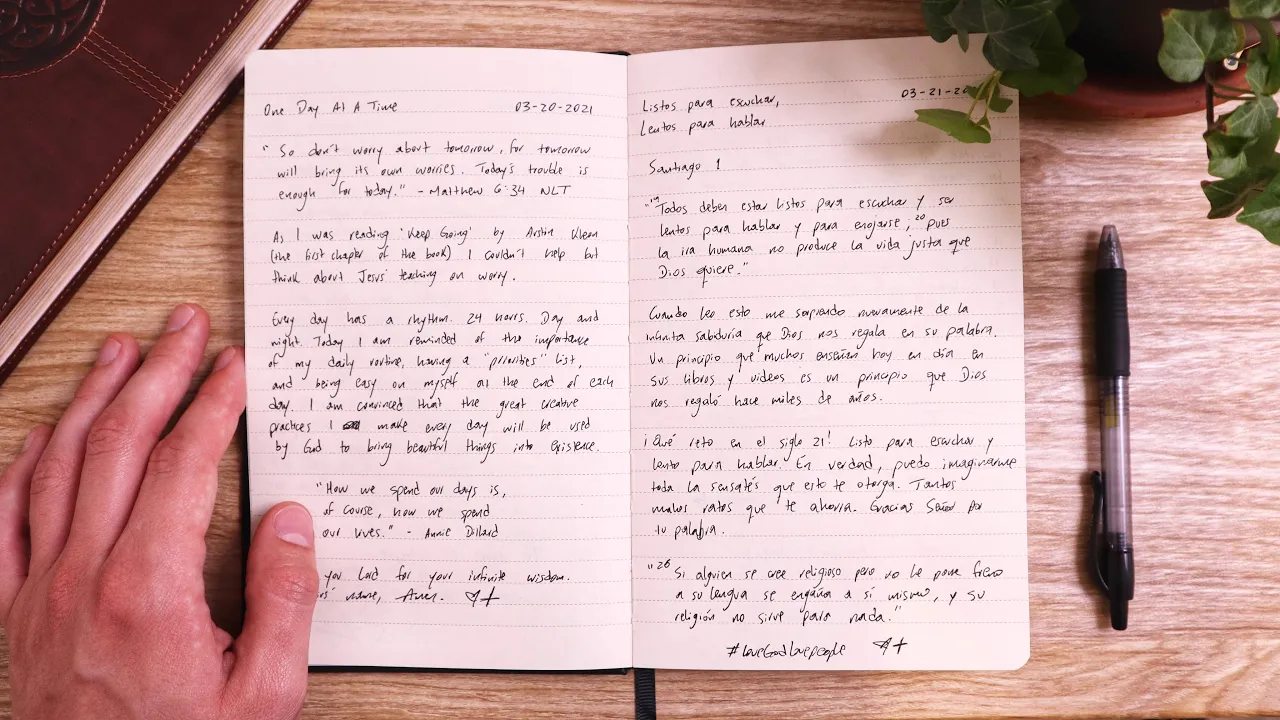 One Day At A Time 03-20-2021
"So don't worry about tomorrow, for tomorrow
will bring its own worries. Today's trouble is
enough for today." - Matthew 6:34 NLT
As I was reading 'Keep Going' by Austin Kleon
(the first chapter of the book) I couldn't help but
think about Jesus' teaching on worry.
Every day has a rhythm. 24 hours. Day and
night. Today I am reminded of the importance
of my daily routine, having a "priorities" list,
and being easy on myself at the end of each
day. I am convinced that the great creative
practices I make every day will be used
by God to bring beautiful things into existence.
"How we spend our days is,
of course, how we spend
our lives." - Annie Dillard
you Lord for your infinite wisdom.
name, Amen.
Listos para escuchar, 03-21-20
Lentos para hablar
Santiago 1
"19 Todos deben estar listos para escuchar y ser
lentos para hablar y para enojarse; 20 pues
la ira humana no produce la vida justa que
Dios quiere."
Cuando leo esto me sorprendo nuevamente de la
infinita sabiduría que Dios nos regala en su palabra.
Un principio que muchos enseñan hoy en día en
sus libros y videos es un principio que Dios
nos regaló hace miles de años.
¡Qué reto en el siglo 21! Listo para escuchar y
lento para hablar. En verdad, puedo imaginarme
toda la sensatez que esto te otorga. Tantos
malos ratos que te ahorra. Gracias Señor por
tu palabra.
"26 Si alguien se cree religioso pero no le pone freno
a su lengua se engaña a sí mismo, y su
religión no sirve para nada."
#loveGodlovepeople